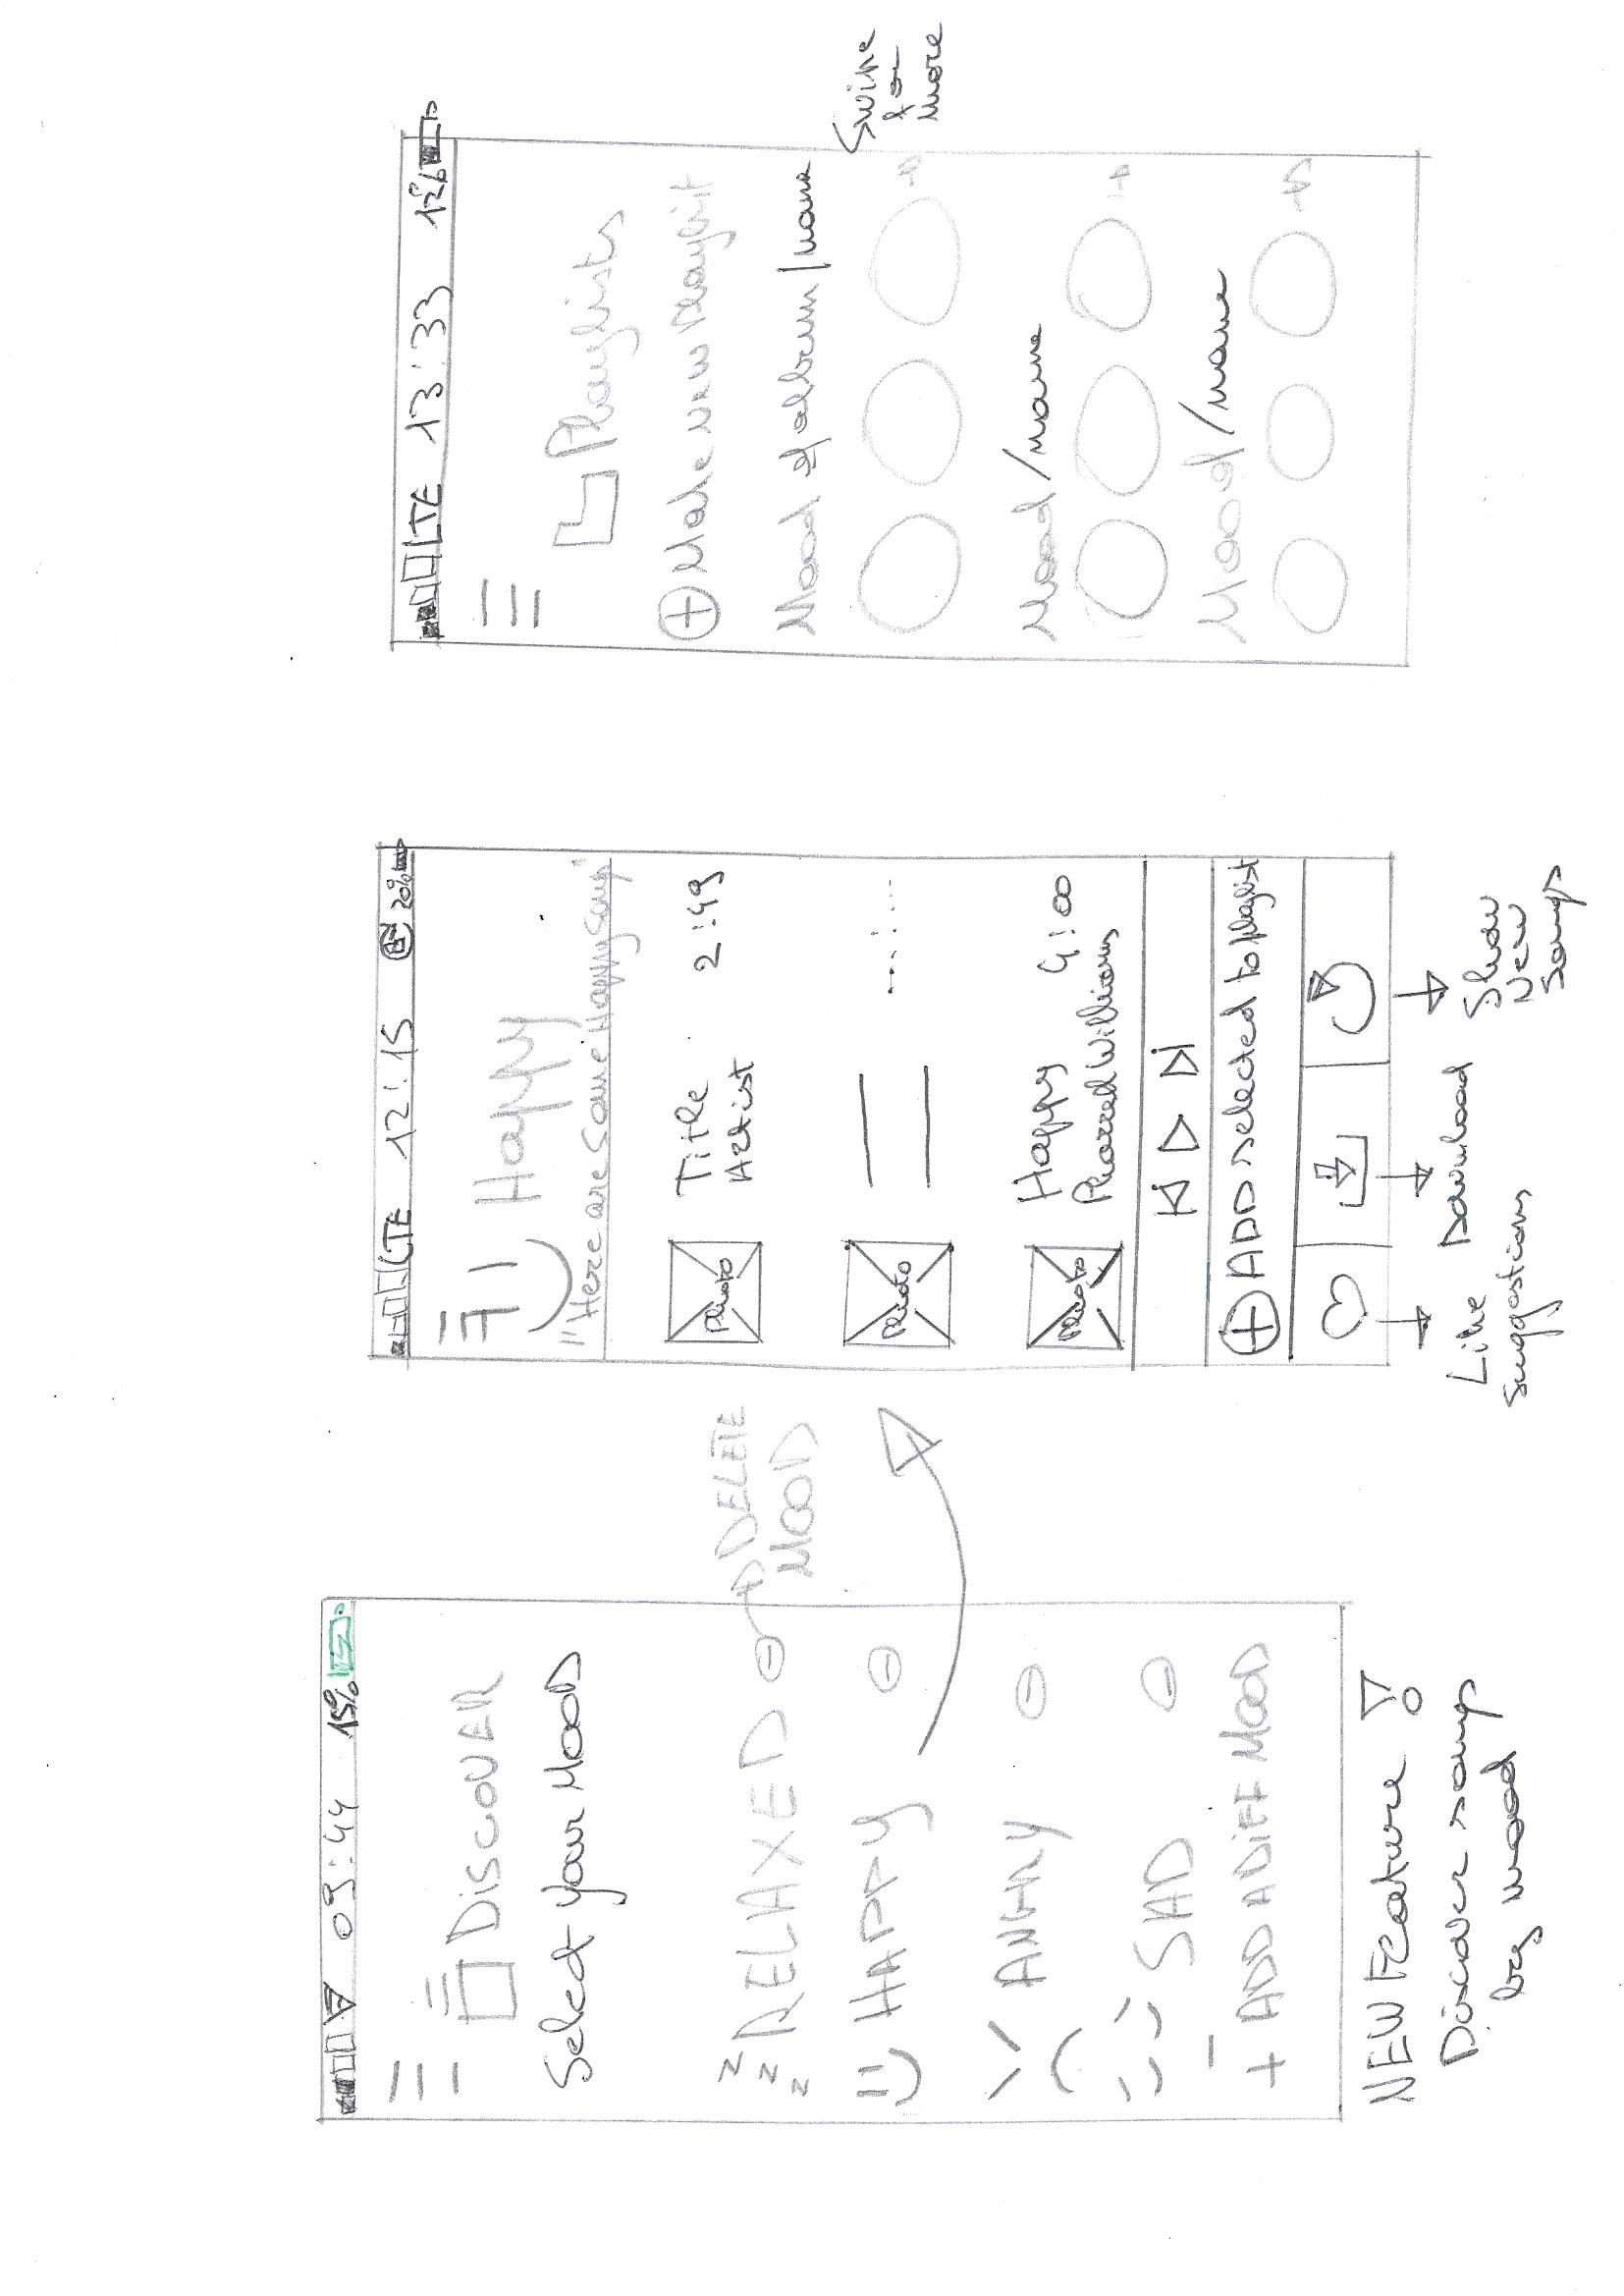 09:44 15%
DiscoVER
Select your MooD
z
z
z
RELAXED
DELETE
MOOD
HAPPY
ANGRY
SAD
+ ADD A DiFF MOOD
NEW Feature !
Discover songs
by mood
LTE 12:15 20%
Happy
"Here are some Happy songs"
Photo
Title 2:49
Artist
Photo
Photo
Happy 4:00
Pharrell Williams
ADD selected to playlist
Like
Suggestions
Download
Show
New
Songs
LTE 13:33 12%
Playlists
Make new Playlist
Mood of album/name
Swipe
for
more
Mood/name
Mood/name